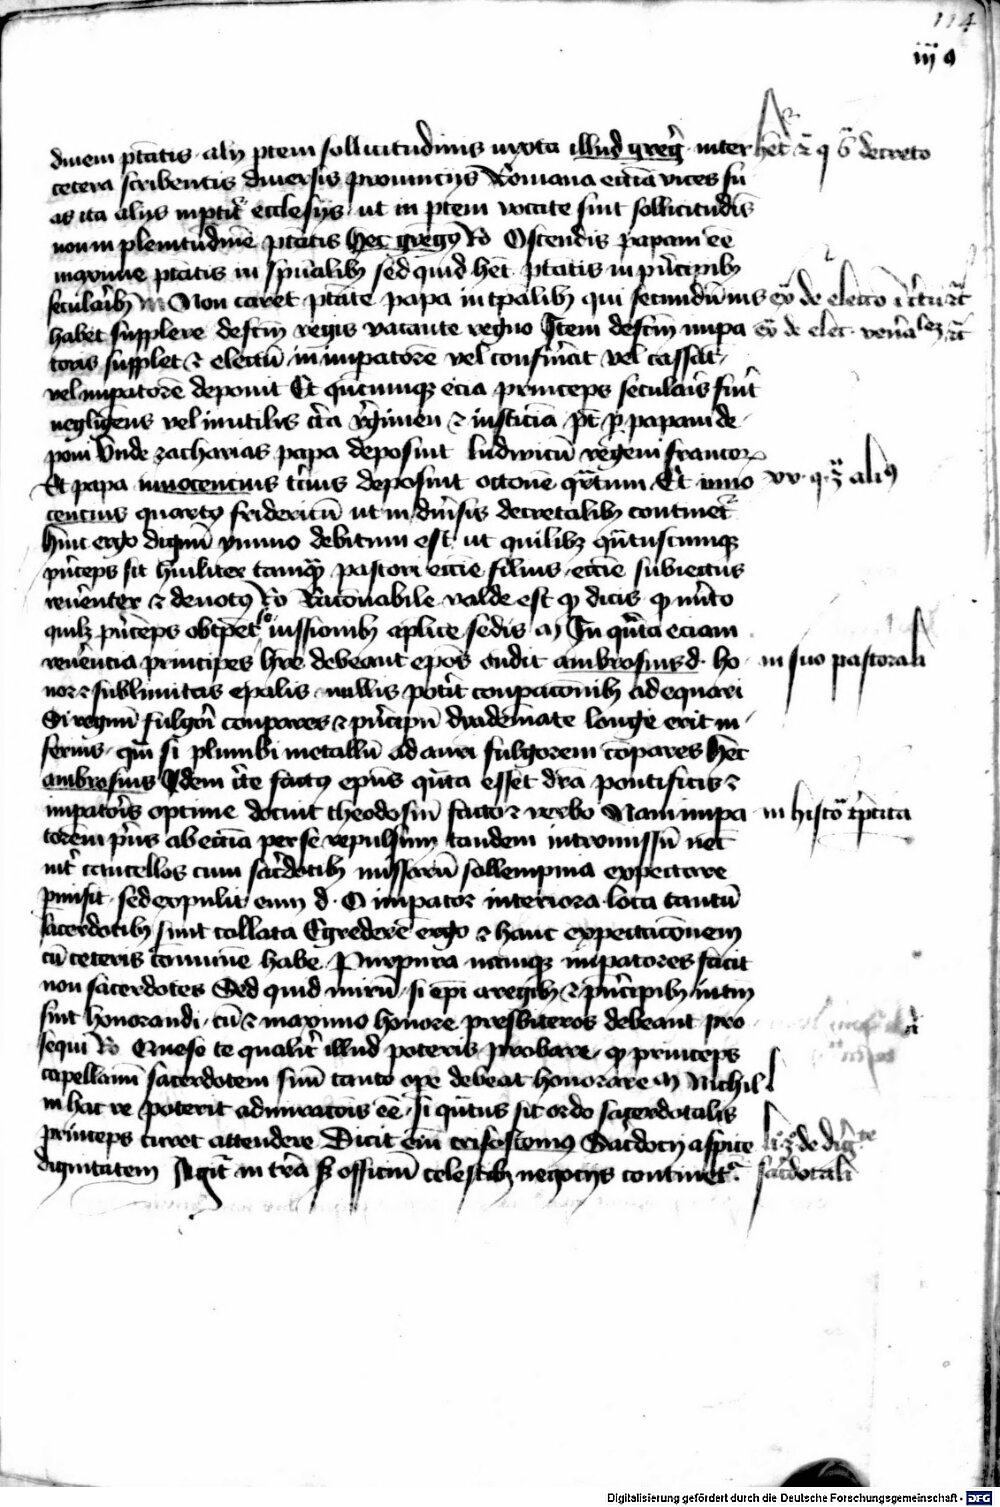 114
iij 9
dinem ptātis · alij ptem sollicitudinis iuxta illud greḡ · inter
hēt r̄ q̄ ß decreto
cetera scribentis diuersis prouincijs Romana eccīa vices su
as ita alijs inptit̄ ecclesijs · ut in ptem vocate sint sollicitudīs
non in plenitudinē ptātis hec gregꝰ Ro Ostendis papam eē
maxime ptātis in spūalibꝫ sed quid hēt ptātis in pn̄cipibꝫ
secularibꝫ m Non caret ptāte papa in tꝑalibꝫ qui secundū ius
ex̄ de electō
habet supplere defectū regis vacante regno Item defectū inpa
ex̄ de elec · ven̄ābilē
toris supplet ⁊ electū in inpatorē vel confirmat vel cassat ·
vel inpatorē deponit Et quicumqꝫ ecia princeps secularis fuīt
negligens vel inutilis circa regimen ⁊ iusticiā pt̄ ꝑ papam de
poni Vnde zacharias papa deposuit ludwicū regem francoꝝ
Et papa innocencius tcīus deposuit ottonē qͣrtum Et inno
xv · q · 3 aliꝰ
cencius quartꝰ fridericū ut in diūsis decretalibꝫ continetͬ
Hinc ergo dignū ymmo debitum est ut quilibꝫ qn̄tuscumqꝫ
pn̄ceps sit hūiliter tamqͣ pastori eccīe filius · eccīe subiectus
reuēnter ⁊ deuotꝰ Ro Racōnabile valde est qꝫ dicis qꝫ mīto
quilꝫ pn̄ceps obtꝑet iussionibꝫ aplīce sedis m In qͣnta eciam
reuēncia principes hr̄e debeant epōs audit ambrosius d · ho
in suo pastorali
nor ⁊ sublimitas epālis · nullis potīt conpacōnibꝫ adequari
Si regum fulgōi conpares ⁊ pn̄cipū dyademate longe erit in
ferius · qͣm si plumbi metallū ad auri fulgorem cōpares hec
ambrosius Idem
factꝰ epūs qͣnta esset drā pontificis ⁊
inpatoris optime docuit theodosiū facto ⁊ verbo Nam inpa
in histō tͥpertita
torem pͥus ab eccīa per se repulsum tandem intromissū nec
int̄ cancellos cum sac̄dotibꝫ missarū sollempnia expectare
pmisit · sed expulit eum d · O inpator interiora loca tantū
sacerdotibꝫ sunt collata Egredere ergo ⁊ hanc expectacōnem
cū ceteris cōmunē habe Purpura namqꝫ inpatores facit
non sacerdotes Sed quid mirū · si epī a regibꝫ ⁊ pn̄cipibꝫ
sint honorandi · cū ⁊ maximo honore presbiteros debeant pro
sequi Ro Queso te qualit̄ illud poteris probare · qꝫ princeps
capellanū sacerdotem suū tanto ope debeat honorare m Nichil
in hac re poterit admiracōis eē · si qn̄tus sit ordo sacerdotalis
princeps curet attendere Dicit enī crisostomꝰ Sacdocij aspice
li · 3 de diḡte
dignitatem Agitͬ in tr̄a sꝫ officiū celestibꝫ negocijs continetͬ
sac̄dotali
Digitalisierung gefördert durch die Deutsche Forschungsgemeinschaft - DFG